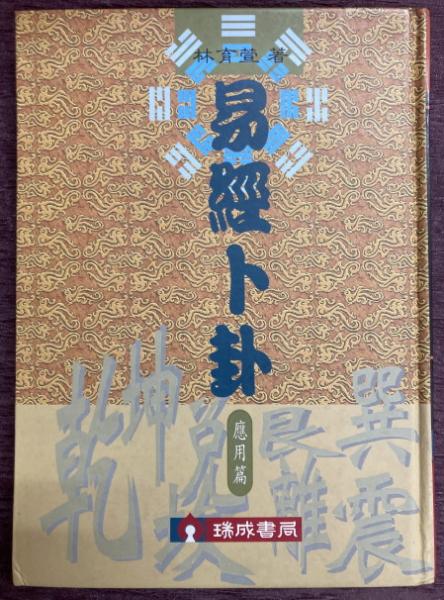 林育萱 著
易經卜卦
應用篇
乾坤兌坎艮離巽震
瑞成書局